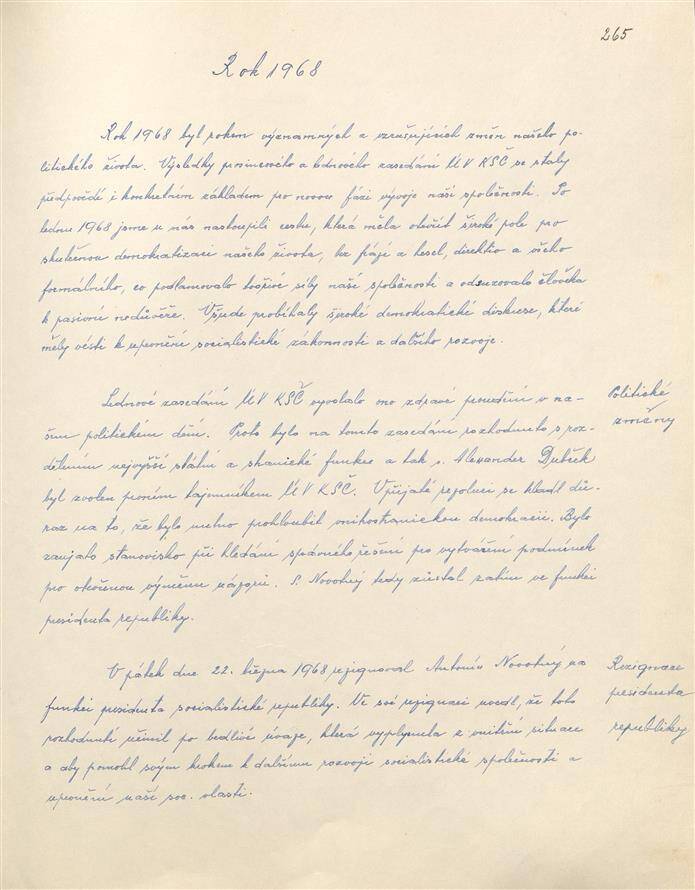 265
Rok 1968
Rok 1968 byl rokem významných a vzrušujících změn našeho po-
litického života. Výsledky prosincového a lednového zasedání ÚV KSČ se staly
předpovědí i konkretním základem pro novou fázi vývoje naší společnosti. Po
lednu 1968 jsme u nás nastoupili cestu, která měla otevřít široké pole pro
skutečnou demokratizaci našeho života, bez frází a hesel, direktiv a všeho
formálního, co podlamovalo tvořivé síly naší společnosti a odsuzovalo člověka
k pasivní nedůvěře. Všude probíhaly široké demokratické diskuse, které
měly vésti k upevnění socialistické zákonnosti a dalšího rozvoje.
Lednové zasedání ÚV KSČ vyvolalo ono zdravé proudění v na-
šem politickém dění. Proto bylo na tomto zasedání rozhodnuto s roz-
dělením nejvyšší státní a stranické funkce a tak s. Alexander Dubček
byl zvolen prvním tajemníkem ÚV KSČ. V přijaté rezoluci se kladl dů-
raz na to, že bylo nutno prohloubit vnitrostranickou demokracii. Bylo
zaujato stanovisko při hledání správného řešení pro vytváření podmínek
pro otevřenou výměnu názorů. S. Novotný tedy zůstal zatím ve funkci
presidenta republiky.
Politické
změny
V pátek dne 22. března 1968 rezignoval Antonín Novotný na
funkci presidenta socialistické republiky. Ve své rezignaci uvedl, že toto
rozhodnutí učinil po bedlivé úvaze, která vyplynula z vnitřní situace
a aby pomohl svým krokem k dalšímu rozvoji socialistické společnosti a
upevnění naší soc. vlasti.
Rezignace
presidenta
republiky